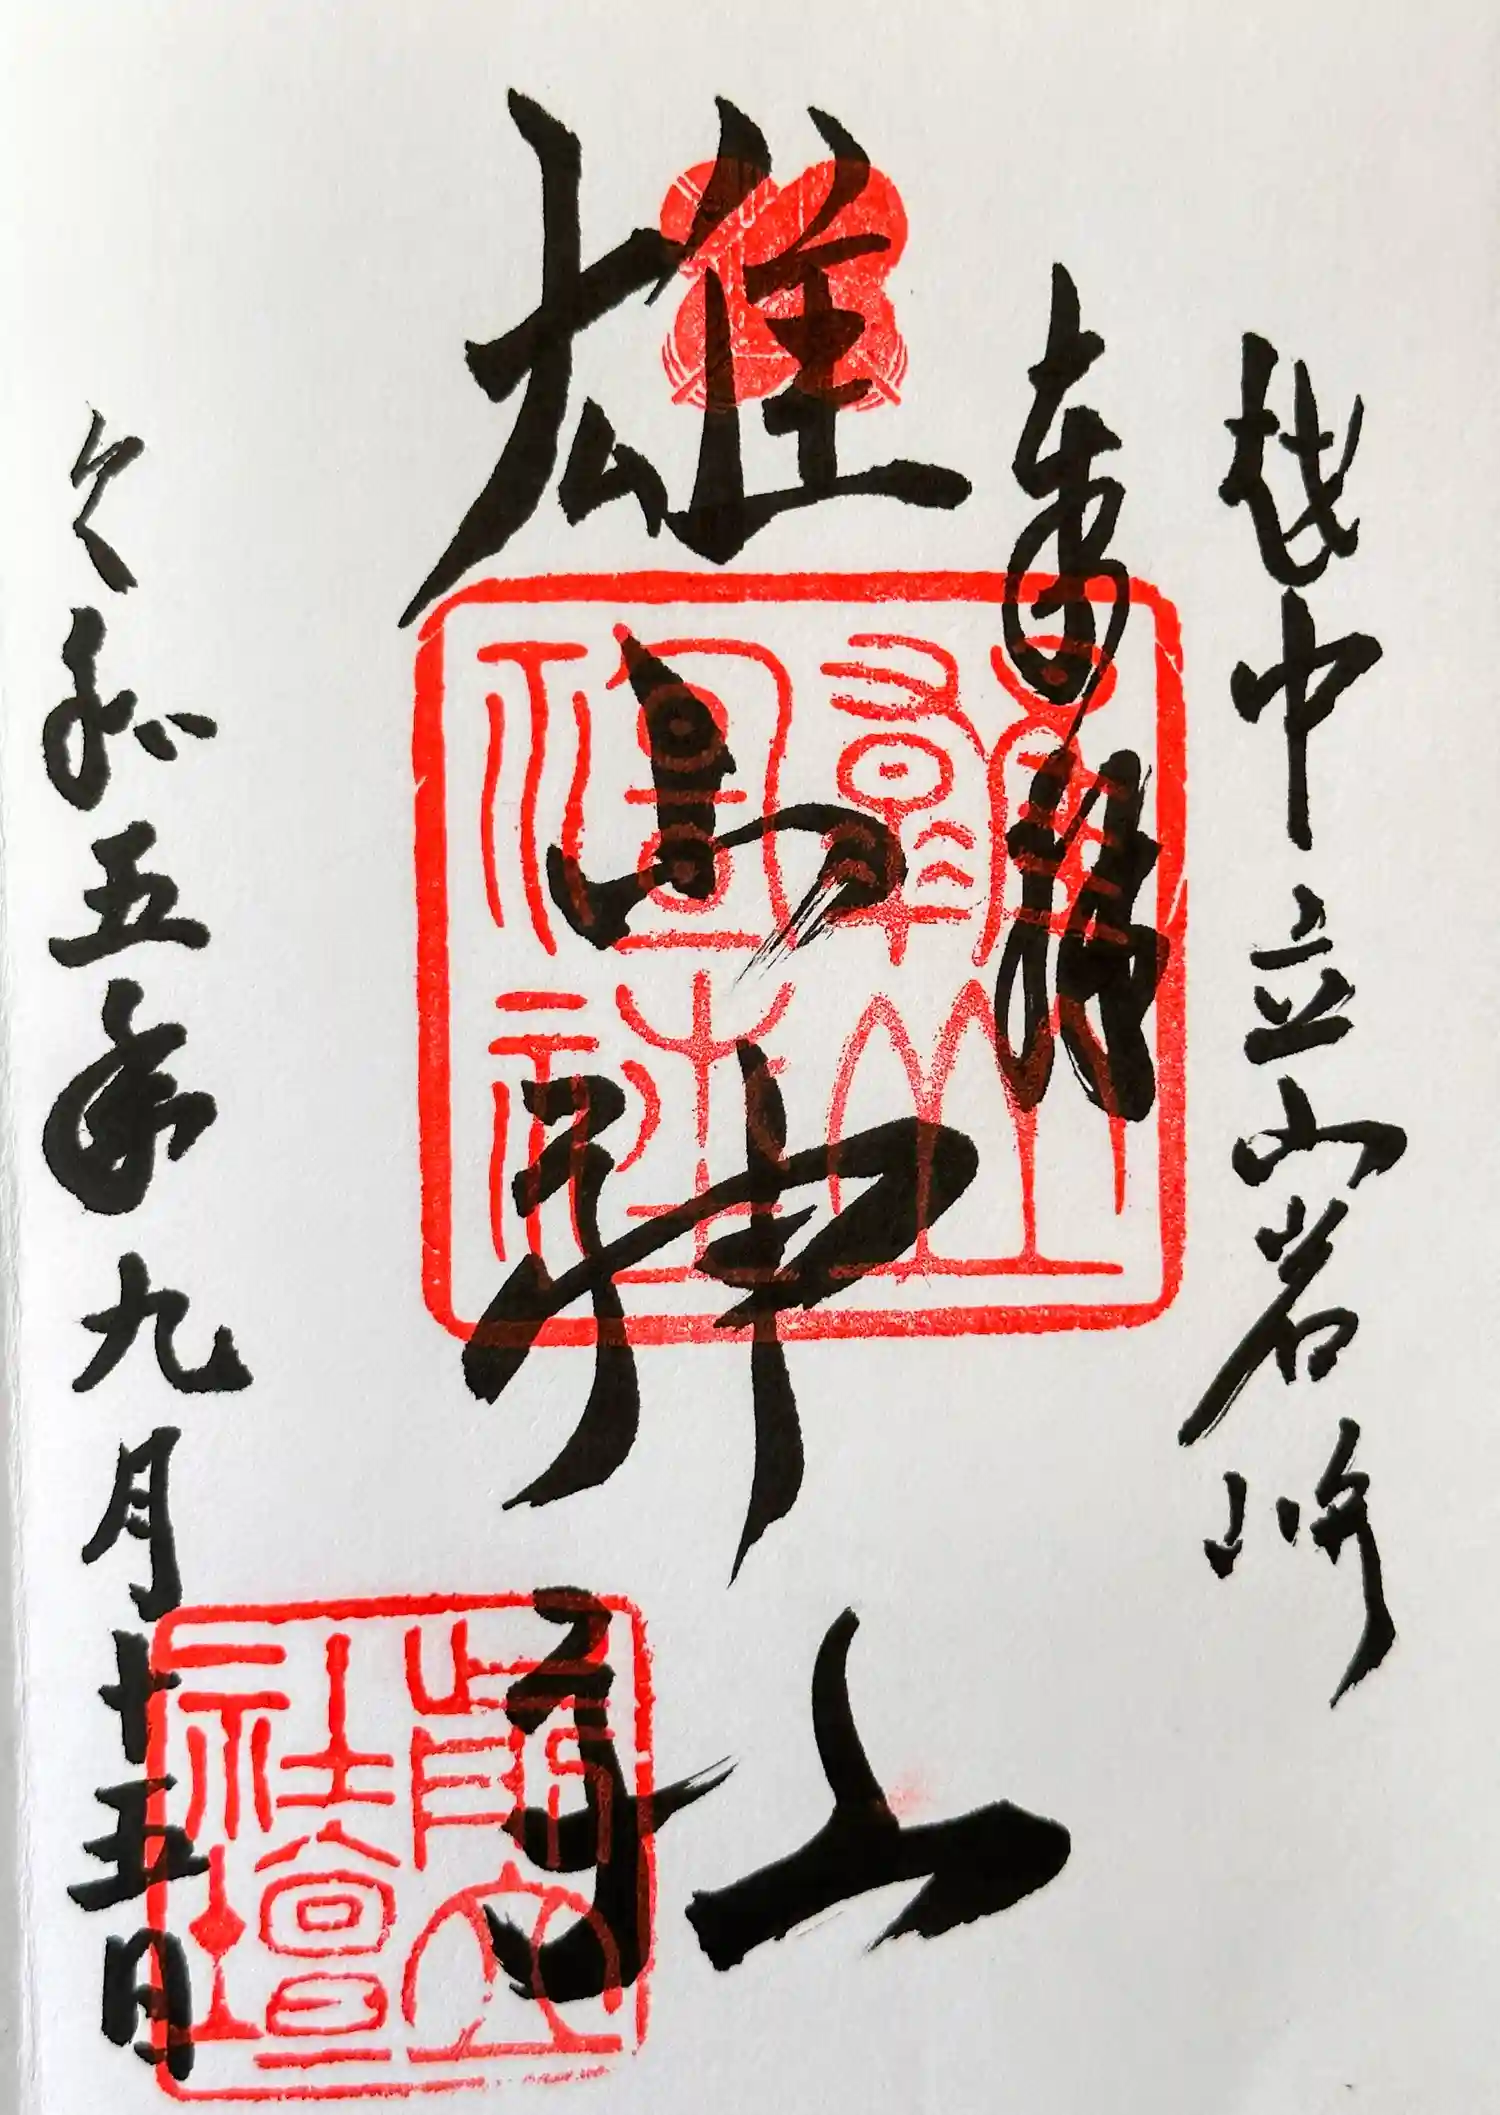 越中立山岩峅
奉拝
雄山神社
雄山神社
前立社壇
令和五年九月十五日